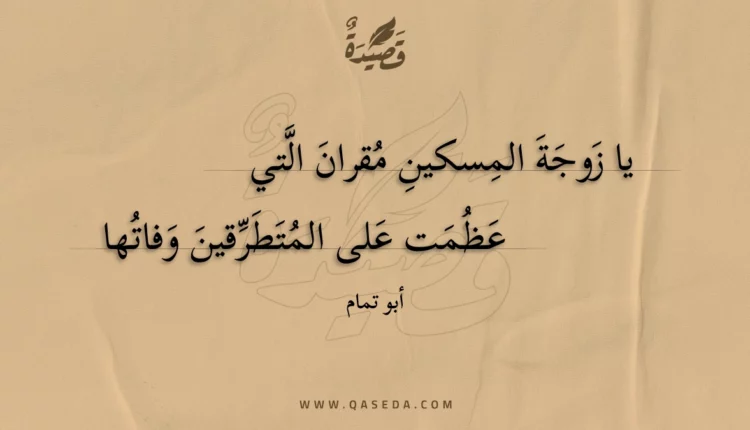 قَصِيدَةٌ
يا زَوجَةَ المِسكينِ مُقرانَ الَّتي
عَظُمَت عَلى المُتَطَرِّقينَ وَفاتُها
أبو تمام
WWW.QASEDA.COM